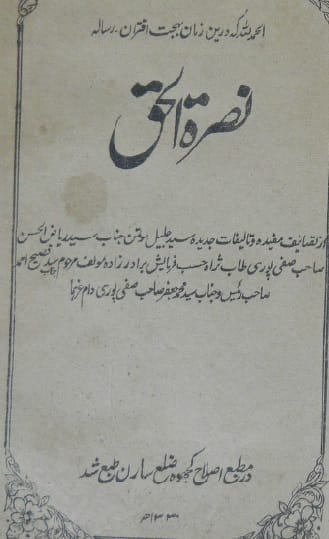 الحمد للہ کہ درین زمان بہجت اقتران رسالہ
نصرۃ الحق
از تصانیف مفیدہ و تالیفات جدیدہ سید جلیل مؤتمن جناب سید ریاض الحسن
صاحب صفی پوری طاب ثراہ حسب فرمایش برادر زادہ مولف مرحوم سید فصیح احمد
صاحب رئیس و جناب سید محمد جعفر صاحب صفی پوری دام عزہما
در مطبع اصلاح کھجوہ ضلع سارن طبع شد